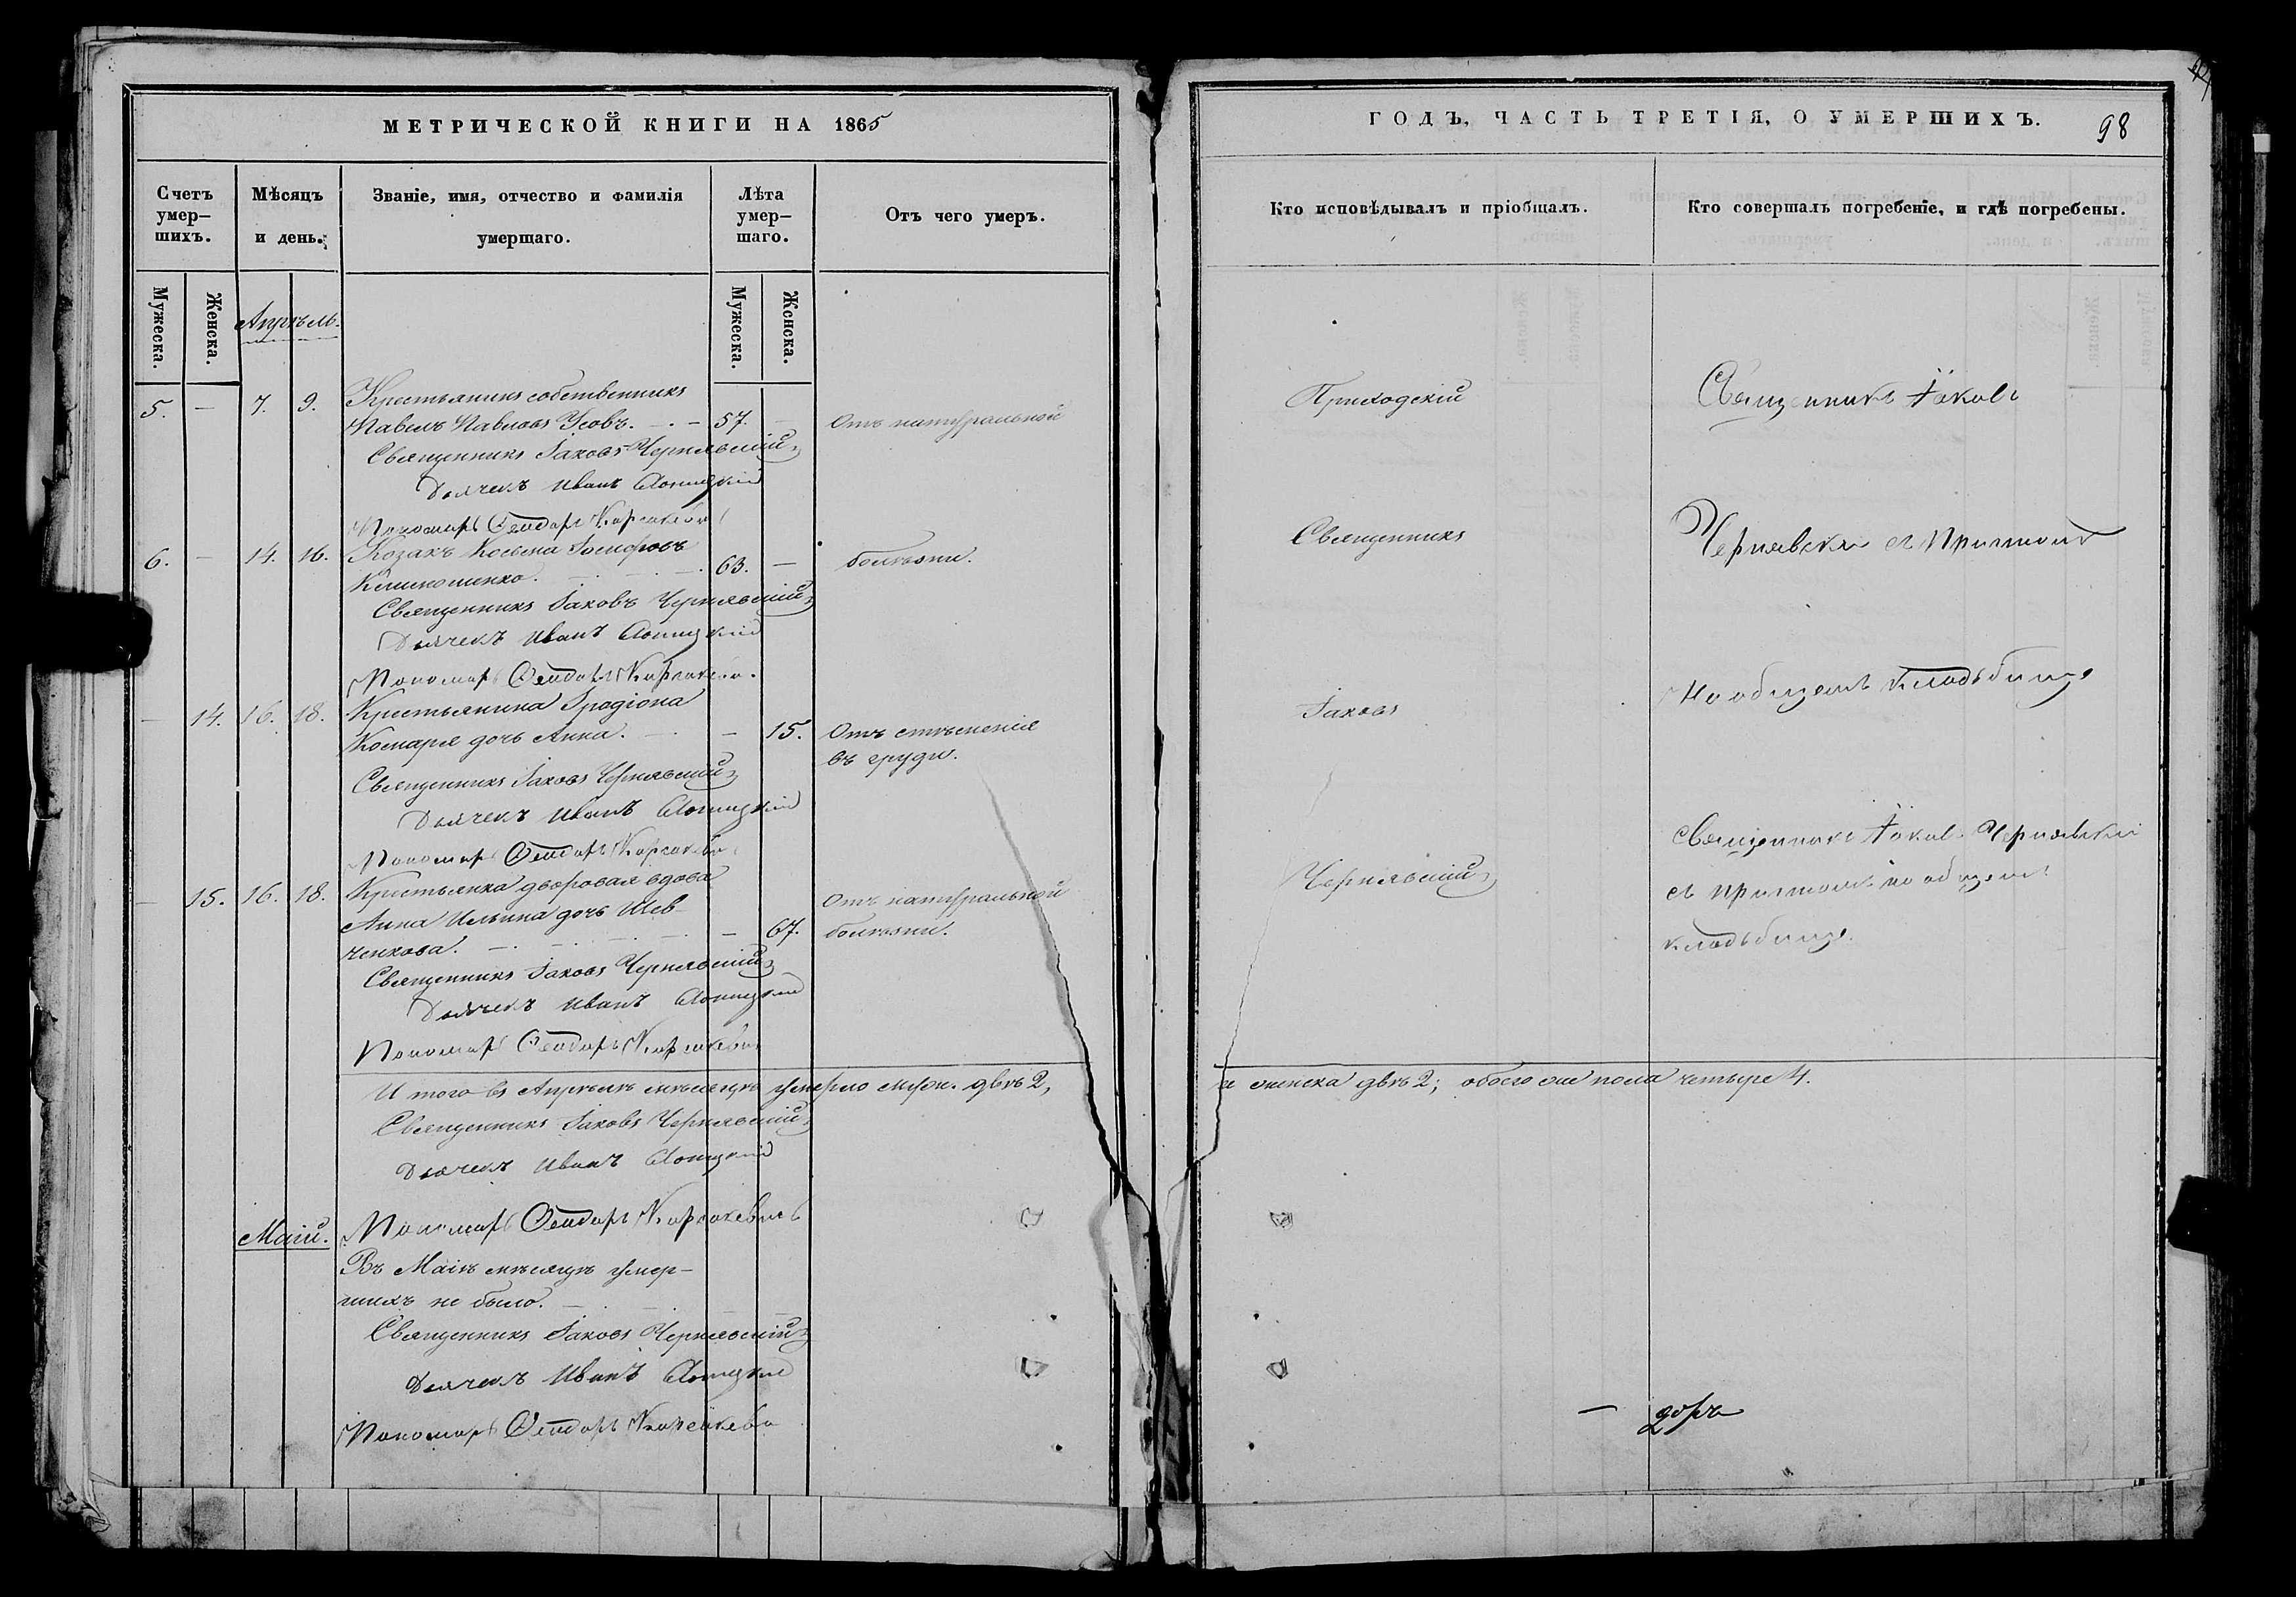 МЕТРИЧЕСКОЙ КНИГИ НА 1865
Счетъ умер- шихъ.
Мѣсяцъ и день.
Званіе, имя, отчество и фамилія умершаго.
Лѣта умер- шаго.
Отъ чего умеръ.
Мужеска.
Женска.
Мужеска.
Женска.
Апрѣль.
5. — 7. 9. Крестьянинъ собственникъ
Павелъ Павловъ Усовъ. — 57. — Отъ натуральной
Священникъ Іаковъ Чернявскій
Дьячекъ Иванъ
Пономарь Феодоръ
6. — 14. 16. Козакъ Косьма
63. — болѣзни.
Священникъ Іаковъ Чернявскій
Дьячекъ Иванъ
Пономарь Феодоръ
— 14. 16. 18. Крестьянина Іродіона
Комаря дочь Анна. — 15. Отъ стѣсненія
въ груди.
Священникъ Іаковъ Чернявскій
Дьячекъ Иванъ
Пономарь Феодоръ
— 15. 16. 18. Крестьянка дворовая вдова
Отъ натуральной
Анна Ильина дочь Шев-
— 67. болѣзни.
ченкова.
Священникъ Іаковъ Чернявскій
Дьячекъ Иванъ
Пономарь Феодоръ
И того въ Апрѣлѣ мѣсяцѣ умерло муж. двѣ 2,
Священникъ Іаковъ Чернявскій
Дьячекъ Иванъ
Маій.
Пономарь Феодоръ
Въ Маіѣ мѣсяцѣ умер-
шихъ не было.
Священникъ Іаковъ Чернявскій
Дьячекъ Иванъ
Пономарь Феодоръ
ГОДЪ, ЧАСТЬ ТРЕТІЯ, О УМЕРШИХЪ.
98
Кто исповѣдывалъ и пріобщалъ.
Кто совершалъ погребеніе, и гдѣ погребены.
Приходскій
Священникъ Іаковъ
Священникъ
Чернявскій съ Причтомъ
Іаковъ
На общемъ кладьбище
Чернявскій
Священникъ Іаковъ Чернявскій
съ причтомъ на общемъ
кладьбище.
и женска двѣ 2; обоего же пола четыре 4.